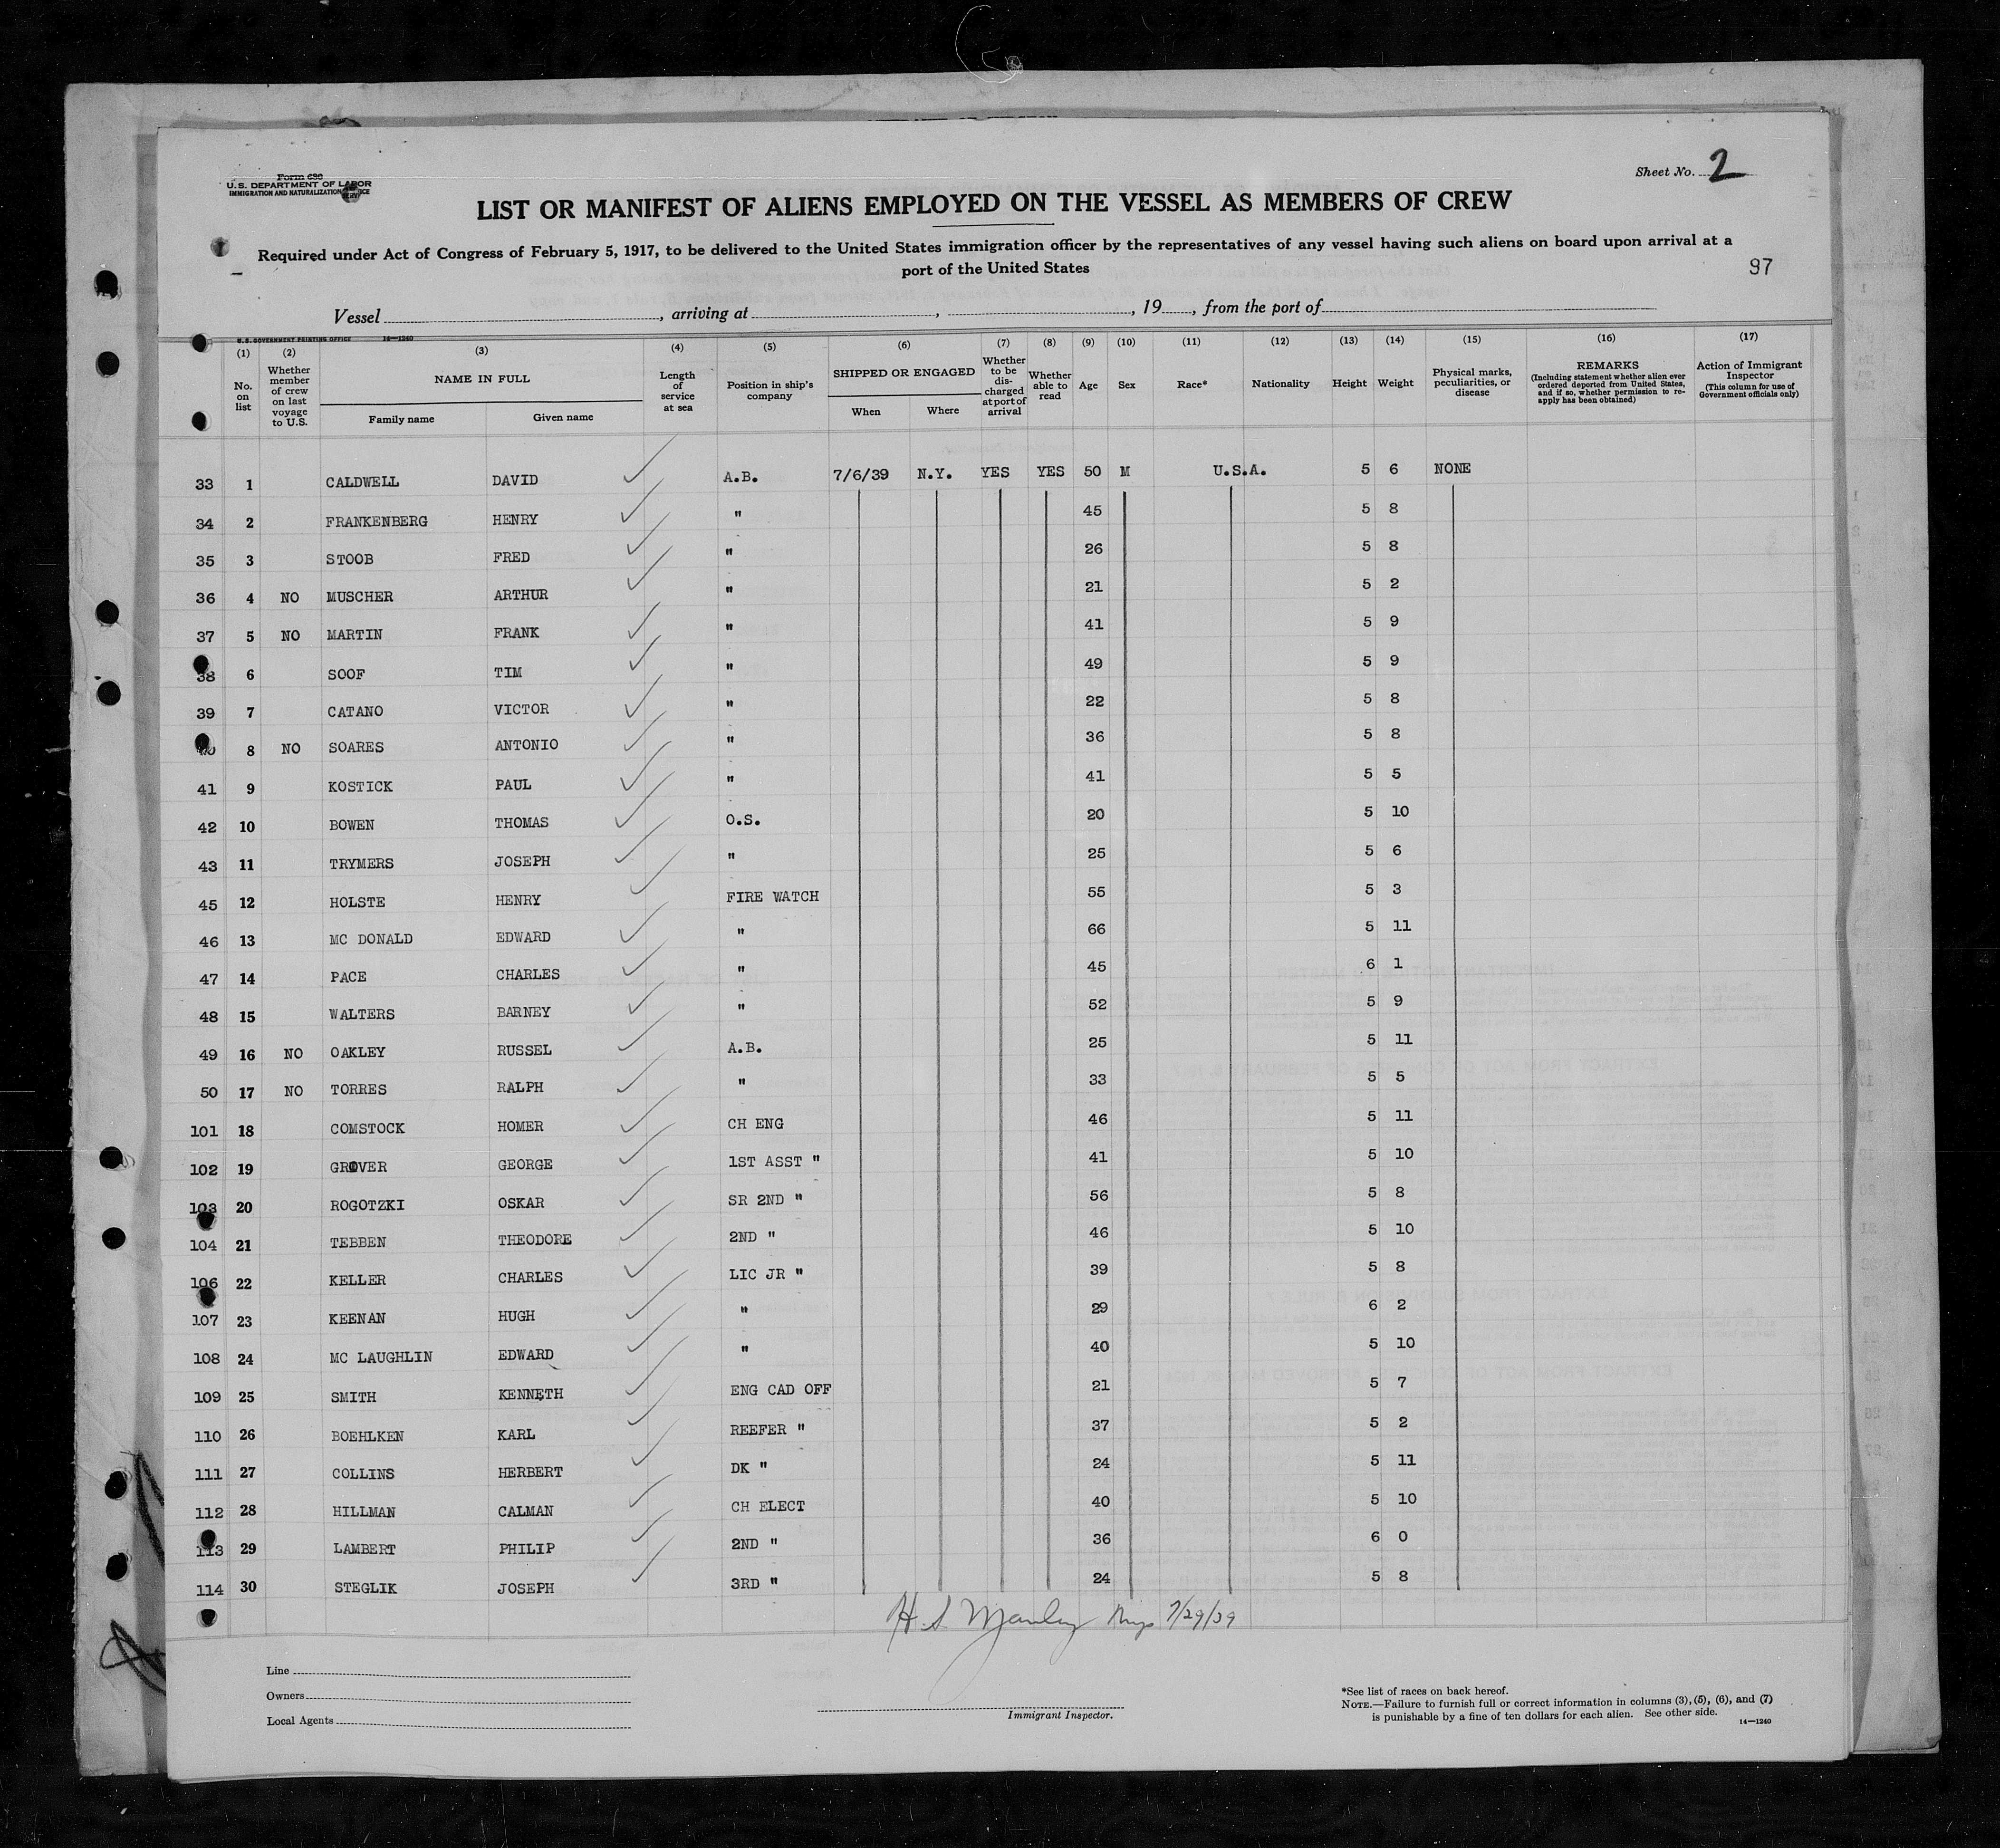 Form 680
U.S. DEPARTMENT OF LABOR
IMMIGRATION AND NATURALIZATION SERVICE
Sheet No. 2
LIST OR MANIFEST OF ALIENS EMPLOYED ON THE VESSEL AS MEMBERS OF CREW
Required under Act of Congress of February 5, 1917, to be delivered to the United States immigration officer by the representatives of any vessel having such aliens on board upon arrival at a
port of the United States
97
Vessel , arriving at , , 19 , from the port of
U.S. GOVERNMENT PRINTING OFFICE 14—1240
(1) (2) (3) (4) (5) (6) (7) (8) (9) (10) (11) (12) (13) (14) (15) (16) (17)
No. on list Whether member of crew on last voyage to U.S. NAME IN FULL Family name Given name Length of service at sea Position in ship's company SHIPPED OR ENGAGED When Where Whether to be discharged at port of arrival Whether able to read Age Sex Race* Nationality Height Weight Physical marks, peculiarities, or disease REMARKS (Including statement whether alien ever ordered deported from United States, and if so, whether permission to re-apply has been obtained) Action of Immigrant Inspector (This column for use of Government officials only)
33 1 CALDWELL DAVID A.B. 7/6/39 N.Y. YES YES 50 M U.S.A. 5 6 NONE
34 2 FRANKENBERG HENRY " 45 5 8
35 3 STOOB FRED " 26 5 8
36 4 NO MUSCHER ARTHUR " 21 5 2
37 5 NO MARTIN FRANK " 41 5 9
38 6 SOOF TIM " 49 5 9
39 7 CATANO VICTOR " 22 5 8
40 8 NO SOARES ANTONIO " 36 5 8
41 9 KOSTICK PAUL " 41 5 5
42 10 BOWEN THOMAS O.S. 20 5 10
43 11 TRYMERS JOSEPH " 25 5 6
45 12 HOLSTE HENRY FIRE WATCH 55 5 3
46 13 MC DONALD EDWARD " 66 5 11
47 14 PACE CHARLES " 45 6 1
48 15 WALTERS BARNEY " 52 5 9
49 16 NO OAKLEY RUSSEL A.B. 25 5 11
50 17 NO TORRES RALPH " 33 5 5
101 18 COMSTOCK HOMER CH ENG 46 5 11
102 19 GROVER GEORGE 1ST ASST " 41 5 10
103 20 ROGOTZKI OSKAR SR 2ND " 56 5 8
104 21 TEBBEN THEODORE 2ND " 46 5 10
106 22 KELLER CHARLES LIC JR " 39 5 8
107 23 KEENAN HUGH " 29 6 2
108 24 MC LAUGHLIN EDWARD " 40 5 10
109 25 SMITH KENNETH ENG CAD OFF 21 5 7
110 26 BOEHLKEN KARL REEFER " 37 5 2
111 27 COLLINS HERBERT DK " 24 5 11
112 28 HILLMAN CALMAN CH ELECT 40 5 10
113 29 LAMBERT PHILIP 2ND " 36 6 0
114 30 STEGLIK JOSEPH 3RD " 24 5 8
H S Manley Insp 7/29/39
Line
Owners
Local Agents
Immigrant Inspector.
*See list of races on back hereof.
NOTE.—Failure to furnish full or correct information in columns (3), (5), (6), and (7)
is punishable by a fine of ten dollars for each alien. See other side.
14—1240